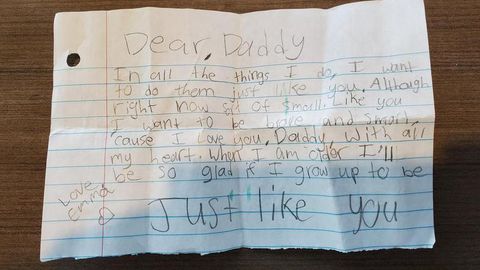 Dear, Daddy
In all the things I do, I want
to do them just like you. Although
right now of small. Like you
I want to be brave and smart,
'cause I Love you, Daddy, with all
my heart. When I am older I'll
be so glad if I grow up to be
Just like you
Love
Emma